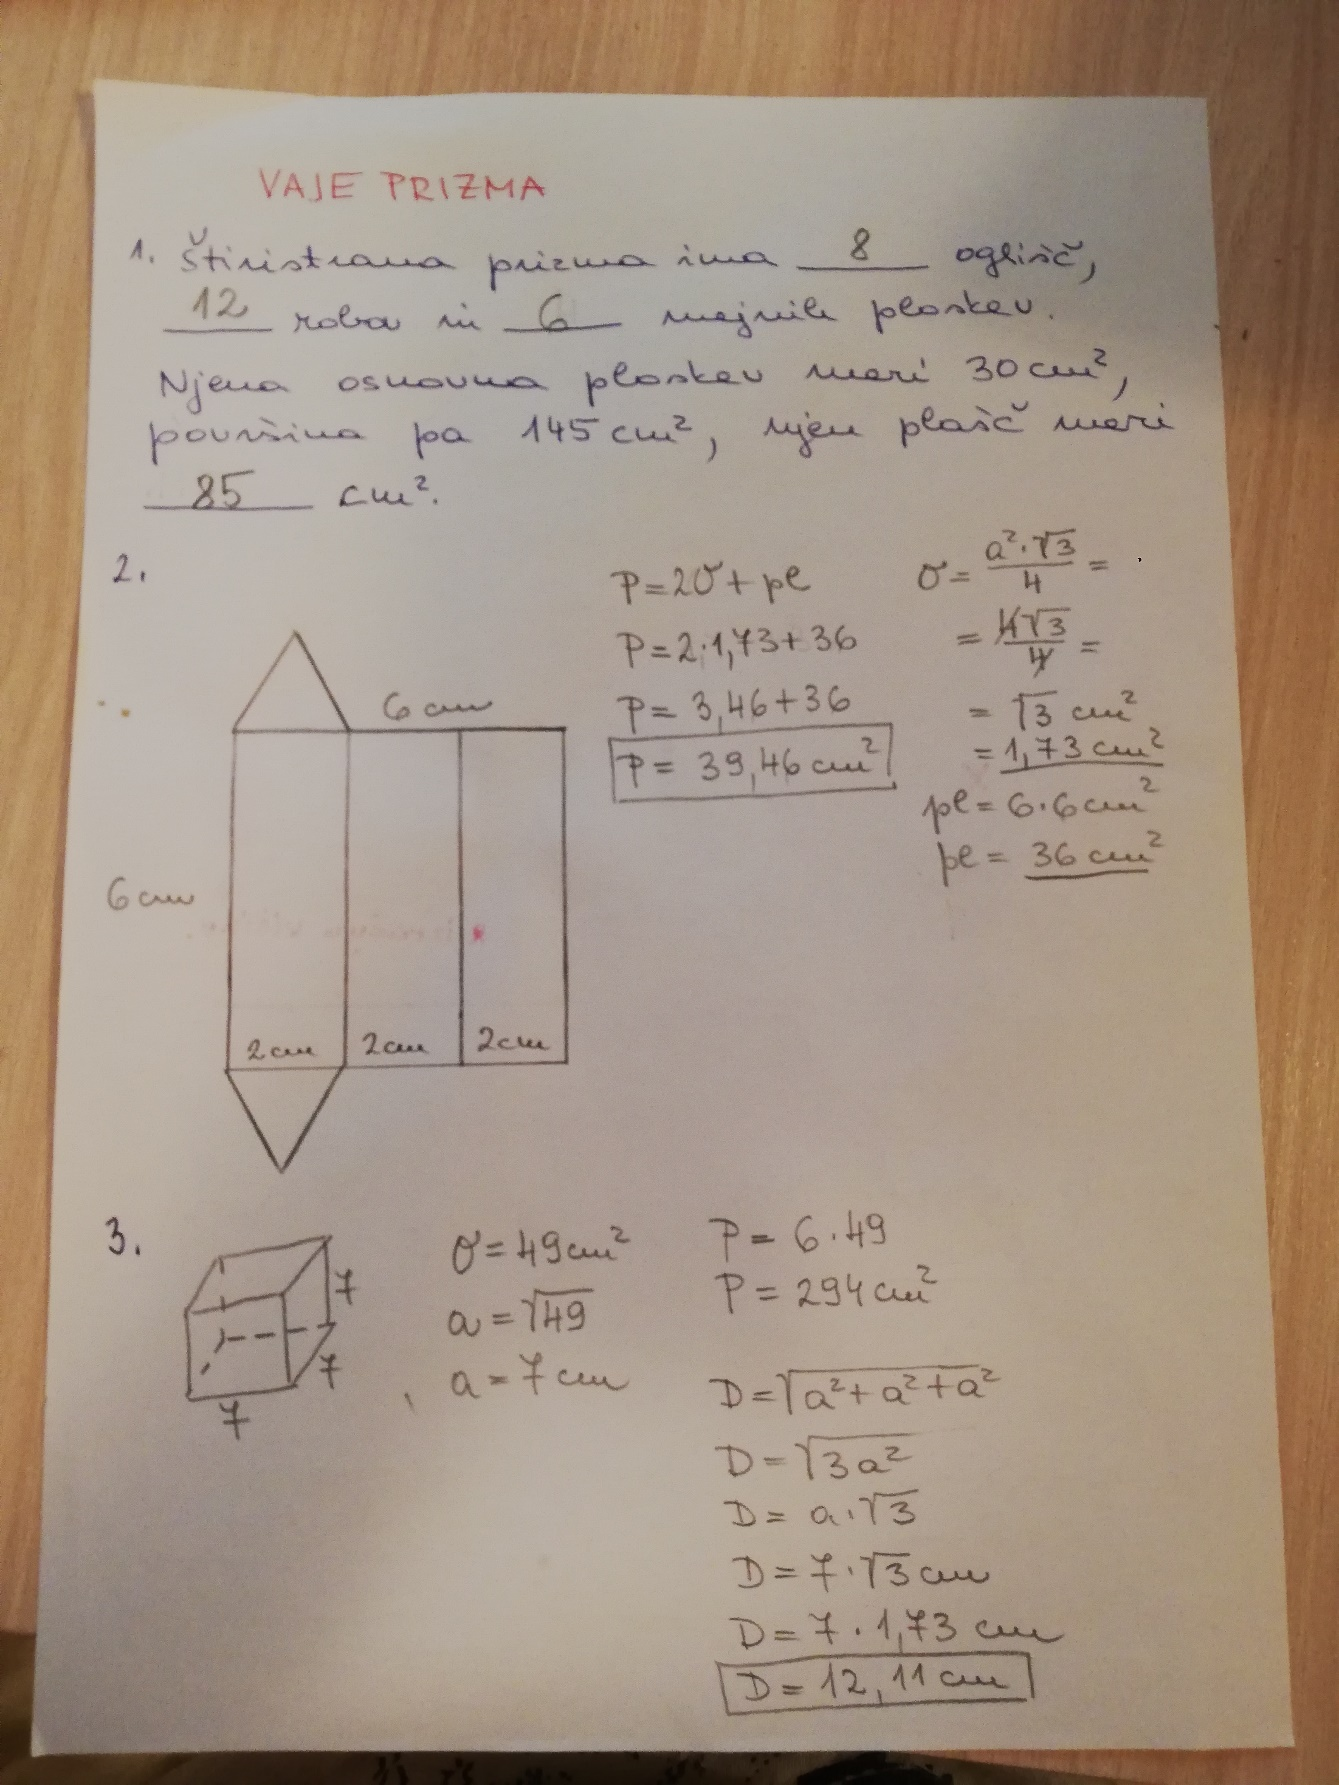 VAJE PRIZMA
1. Štiristrana prizma ima 8 oglišč,
12 robov in 6 mejnih ploskev.
Njena osnovna ploskev meri 30 cm²,
površina pa 145 cm², njen plašč meri
85 cm².
2.
6 cm
6 cm
2 cm 2 cm 2 cm
P = 2O + pl
P = 2·1,73 + 36
P = 3,46 + 36
P = 39,46 cm²
O = a²·√3/4 =
= 4√3/4 =
= √3 cm²
= 1,73 cm²
pl = 6·6 cm²
pl = 36 cm²
3.
7
7
7
O = 49 cm²
a = √49
a = 7 cm
P = 6·49
P = 294 cm²
D = √a² + a² + a²
D = √3a²
D = a·√3
D = 7·√3 cm
D = 7·1,73 cm
D = 12,11 cm